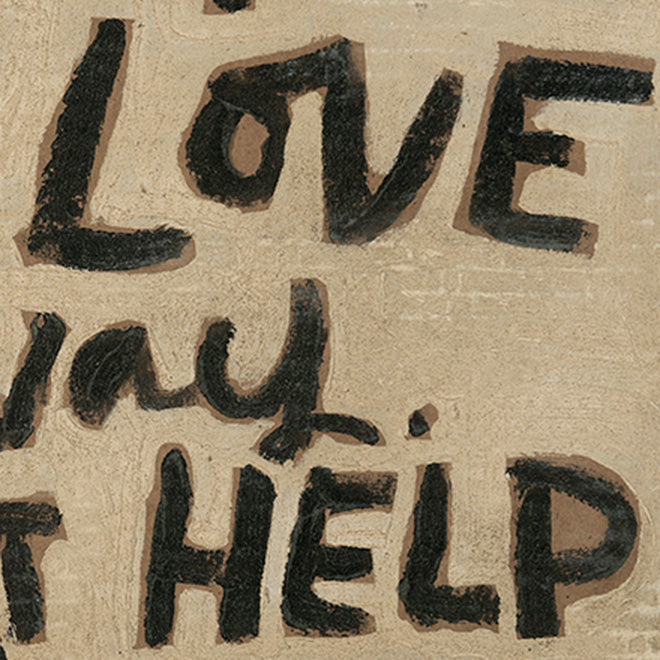 LOVE
way.
T HELP